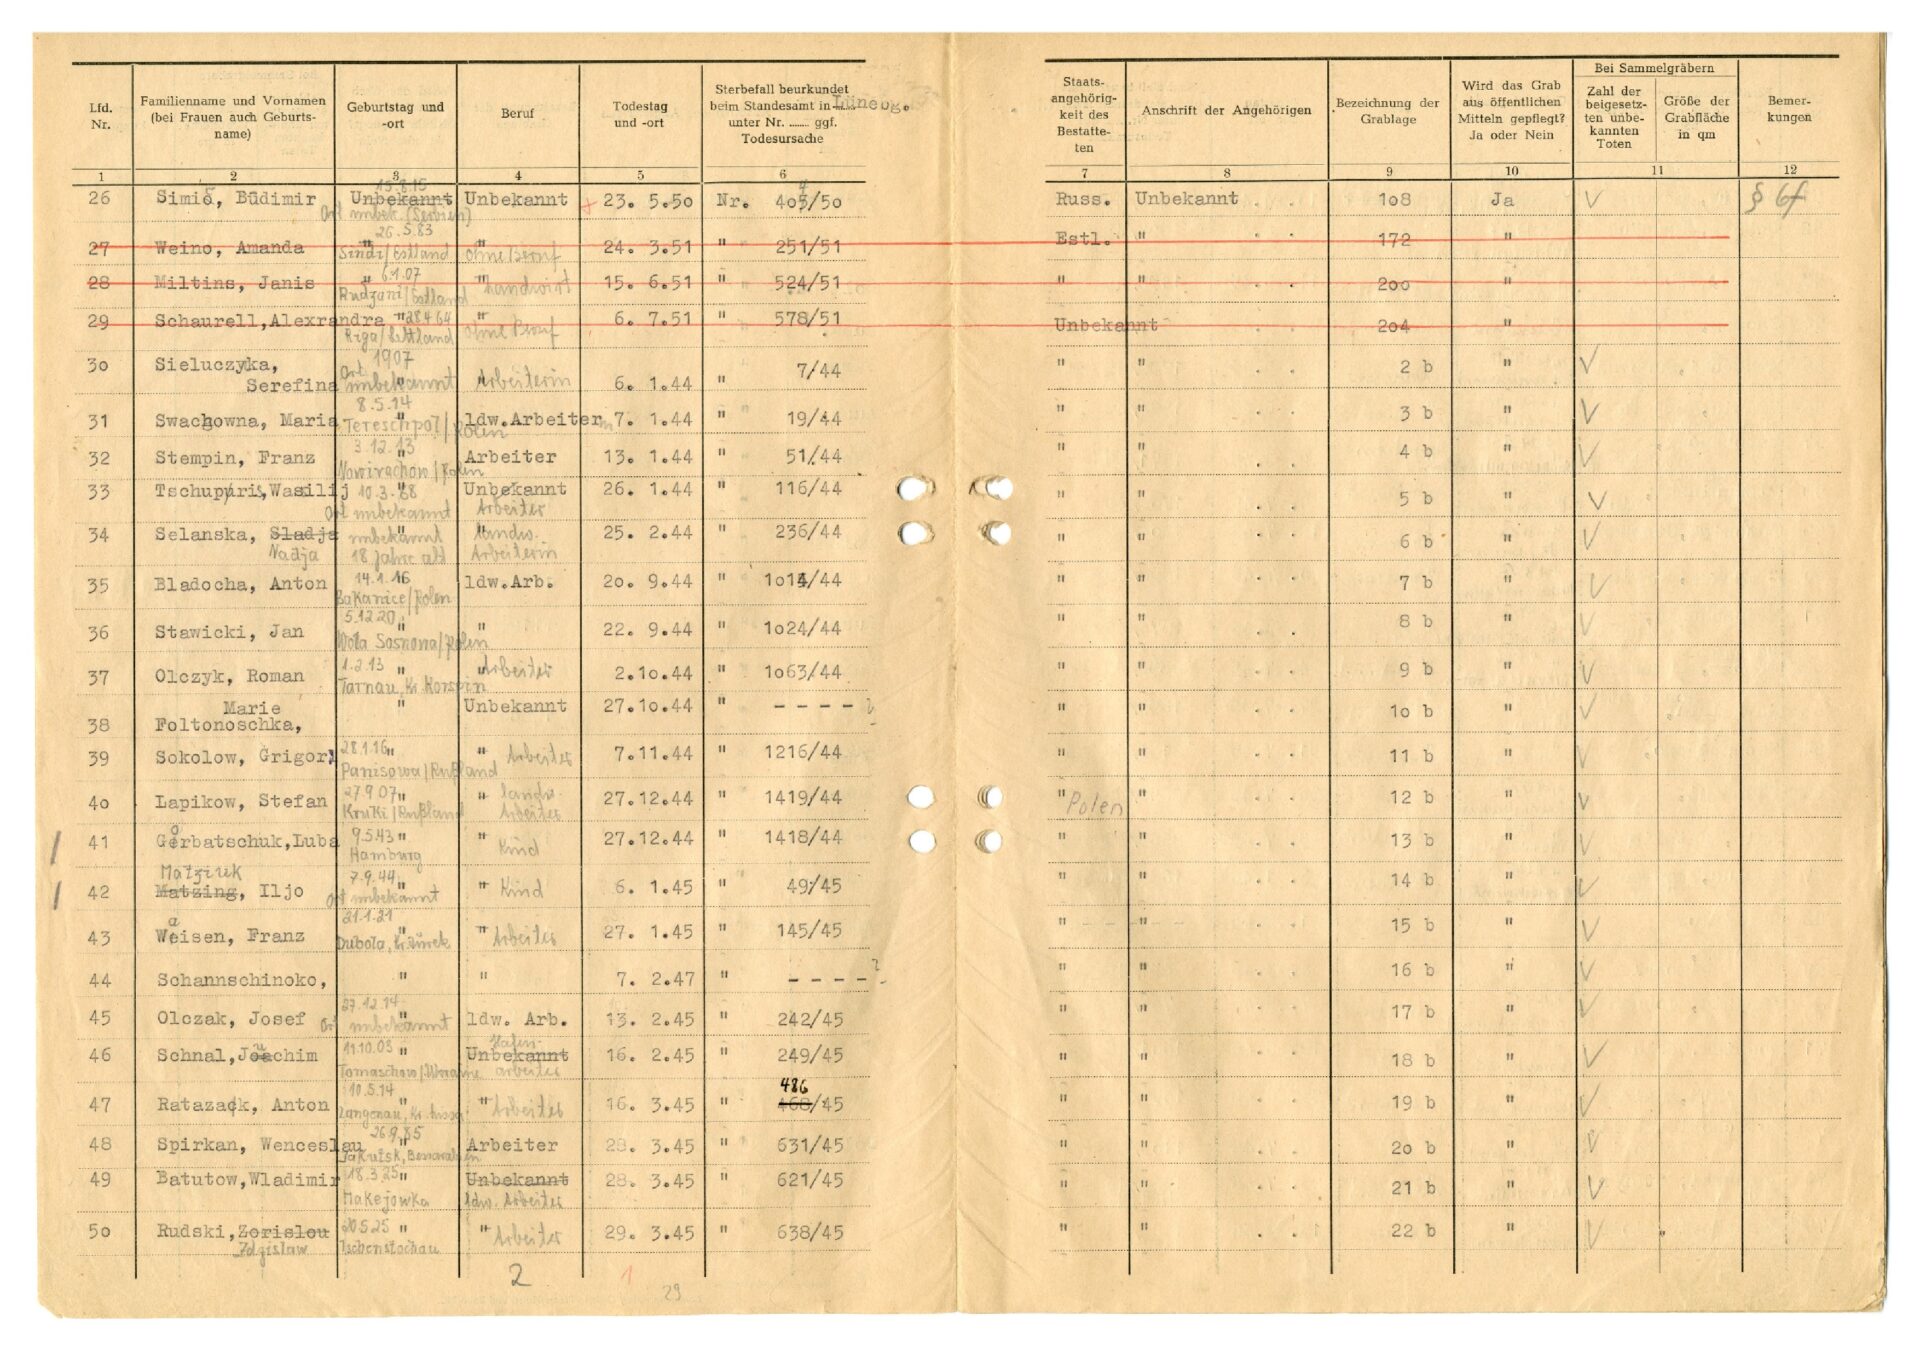 Lfd. Nr.
Familienname und Vornamen (bei Frauen auch Geburtsname)
Geburtstag und -ort
Beruf
Todestag und -ort
Sterbefall beurkundet beim Standesamt in Lünebg. unter Nr. ........ ggf. Todesursache
Staatsangehörigkeit des Bestatteten
Anschrift der Angehörigen
Bezeichnung der Grablage
Wird das Grab aus öffentlichen Mitteln gepflegt? Ja oder Nein
Bei Sammelgräbern
Zahl der beigesetzten unbekannten Toten
Größe der Grabfläche in qm
Bemerkungen
1 2 3 4 5 6 7 8 9 10 11 12
13.8.15
26 Simić, Budimir Unbekannt Unbekannt 23. 5.50 Nr. 404/50 Russ. Unbekannt 108 Ja V § 6f
Ort unbek. (Serbien)
26.5.83
27 Weino, Amanda " " 24. 3.51 " 251/51 Estl. " 172 "
Sindi/Estland ohne Beruf
6.1.07
28 Miltins, Janis " " Landwirt 15. 6.51 " 524/51 " " 200 "
Rudzani/Estland
29 Schaurell, Alexrandra " 28 4 64 " 6. 7.51 " 578/51 Unbekannt 204 "
Riga/Lettland ohne Beruf
30 Sieluczyka, 1907 7/44 " " 2 b " V
Serefina Ort unbekannt " Arbeiterin 6. 1.44 "
8.5.14
31 Swachowna, Maria " ldw. Arbeiterin 7. 1.44 " 19/44 " " 3 b " V
Tereschpol/Polen
3.12.13
32 Stempin, Franz " Arbeiter 13. 1.44 " 51/44 " " 4 b " V
Nowirachow/Polen
33 Tschuparis, Wasilij 10.3.88 Unbekannt 26. 1.44 " 116/44 " " 5 b " V
Ort unbekannt Arbeiter
34 Selanska, Sladja unbekannt " landw. 25. 2.44 " 236/44 " " 6 b " V
Nadja 18 Jahre alt Arbeiterin
35 Bladocha, Anton 14.1.16 ldw.Arb. 20. 9.44 " 1014/44 " " 7 b " V
Bakanice/Polen
5.12 20
36 Stawicki, Jan " " 22. 9.44 " 1024/44 " " 8 b " V
Wola Sosnowa/Polen
1.2.13
37 Olczyk, Roman " " Arbeiter 2.10.44 " 1063/44 " " 9 b " V
Tarnau, Kr.
Marie " Unbekannt 27.10.44 " - - - - ? " " 10 b " V
38 Foltonoschka,
39 Sokolow, Grigori 28.1.16 " " Arbeiter 7.11.44 " 1216/44 " " 11 b " V
Panisowa/Rußland
40 Lapikow, Stefan 27.9 07 " " landw. 27.12.44 " 1419/44 " Polen " 12 b " V
Kruki/Rußland Arbeiter
41 Gorbatschuk, Luba 9.5.43 " " Kind 27.12.44 " 1418/44 " " 13 b " V
Hamburg
Matzirek 7.9.44
42 Matzing, Iljo " " Kind 6. 1.45 " 49/45 " " 14 b " V
Ort unbekannt
21.1.21
43 Waisen, Franz " " Arbeiter 27. 1.45 " 145/45 " " 15 b " V
Dubola, Kr. Turek
44 Schannschinoko, " " 7. 2.47 " - - - - ? " " 16 b " V
27.12.14
45 Olczak, Josef " ldw. Arb. 13. 2.45 " 242/45 " " 17 b " V
Ort unbekannt
46 Schnal, Joachim 11.10.03 " Unbekannt Hafenarbeiter 16. 2.45 " 249/45 " " 18 b " V
Tomaschow/Ukraine
10.5.14 486
47 Ratazack, Anton " " Arbeiter 16. 3.45 " 468/45 " " 19 b " V
Langenau, Kr. Lissa
26.9.85
48 Spirkan, Wenceslau " Arbeiter 28. 3.45 " 631/45 " " 20 b " V
Jakutsk, Bessarabien
49 Batutow, Wladimir 18.3.25 " Unbekannt 28. 3.45 " 621/45 " " 21 b " V
Makejowka ldw. Arbeiter
50 Rudski, Zorislou 20.5.25 " " Arbeiter 29. 3.45 " 638/45 " " 22 b " V "
Zdzislaw Tschenstochau
2 1 29